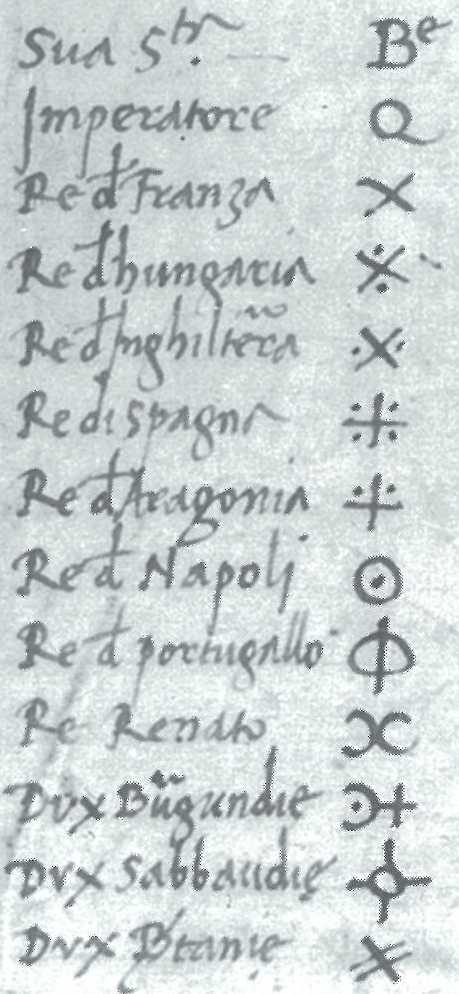 Sua Stà. — Be
Imperatore
Re d Franza
Re d hungaria
Re d Inghilterra
Re di Spagna
Re d Aragonia
Re d Napolj
Re d portugallo
Re Renato
Dux Burgundie
Dux Sabbaudie
Dux Btanie